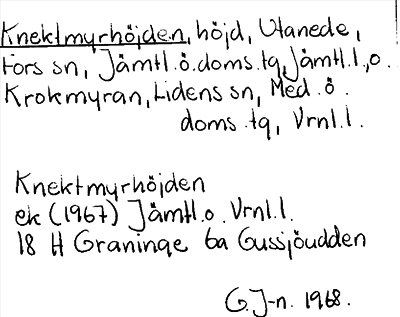 Knektmyrhöjden, höjd, Utanede,
Fors sn, Jämtl.ö.doms.tg, Jämtl.l., o.
Krokmyran, Lidens sn, Med.ö.
doms.tg, Vrnl.l.
Knektmyrhöjden
ek (1967) Jämtl. o. Vrnl.l.
18 H Graninge 6a Gussjöudden
G.J-n. 1968.